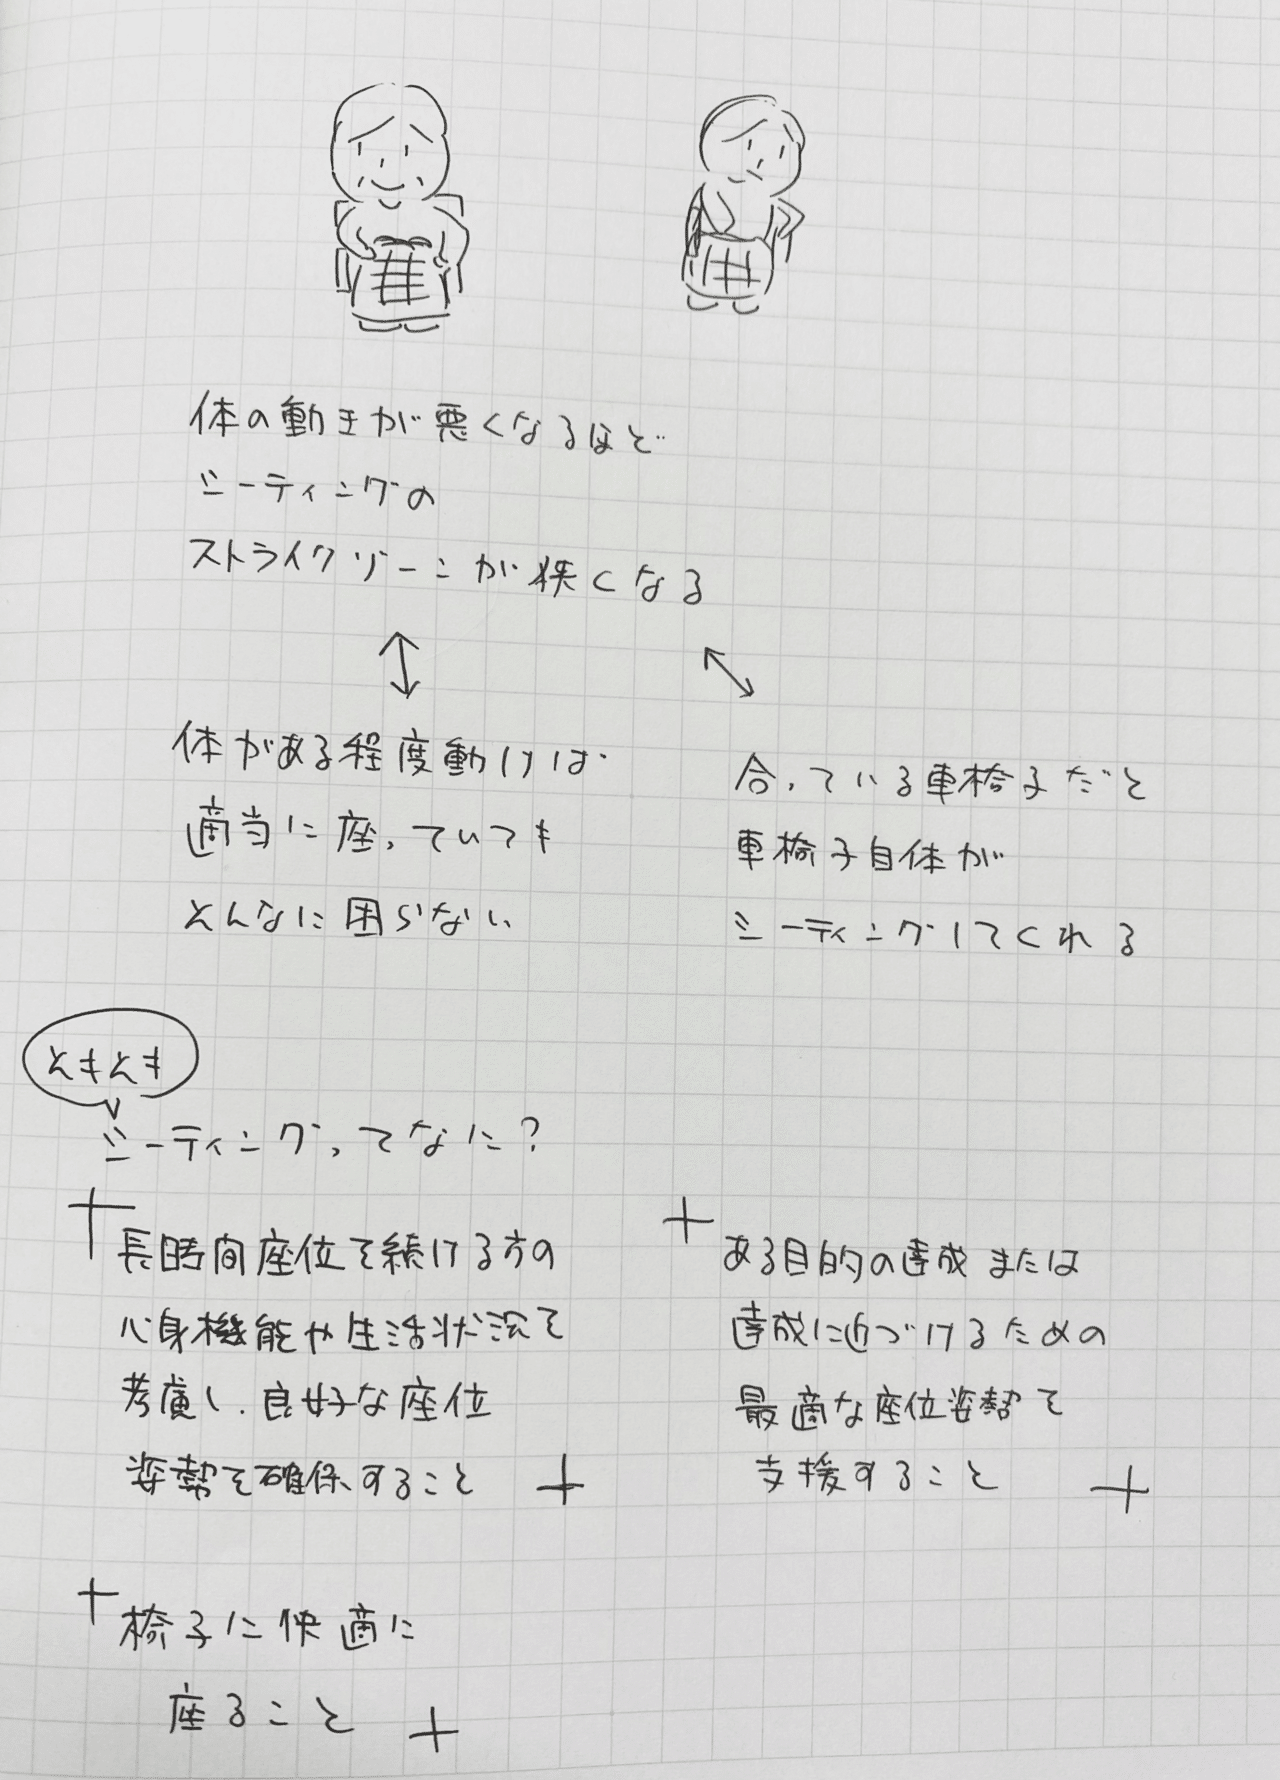 体の動きが悪くなるほど
シーティングの
ストライクゾーンが狭くなる
体がある程度動けば
適当に座っていても
そんなに困らない
合っている車椅子だと
車椅子自体が
シーティングしてくれる
そもそも
シーティングってなに？
長時間座位を続ける方の
心身機能や生活状況を
考慮し、良好な座位
姿勢を確保すること
ある目的の達成または
達成に近づけるための
最適な座位姿勢を
支援すること
椅子に快適に
座ること